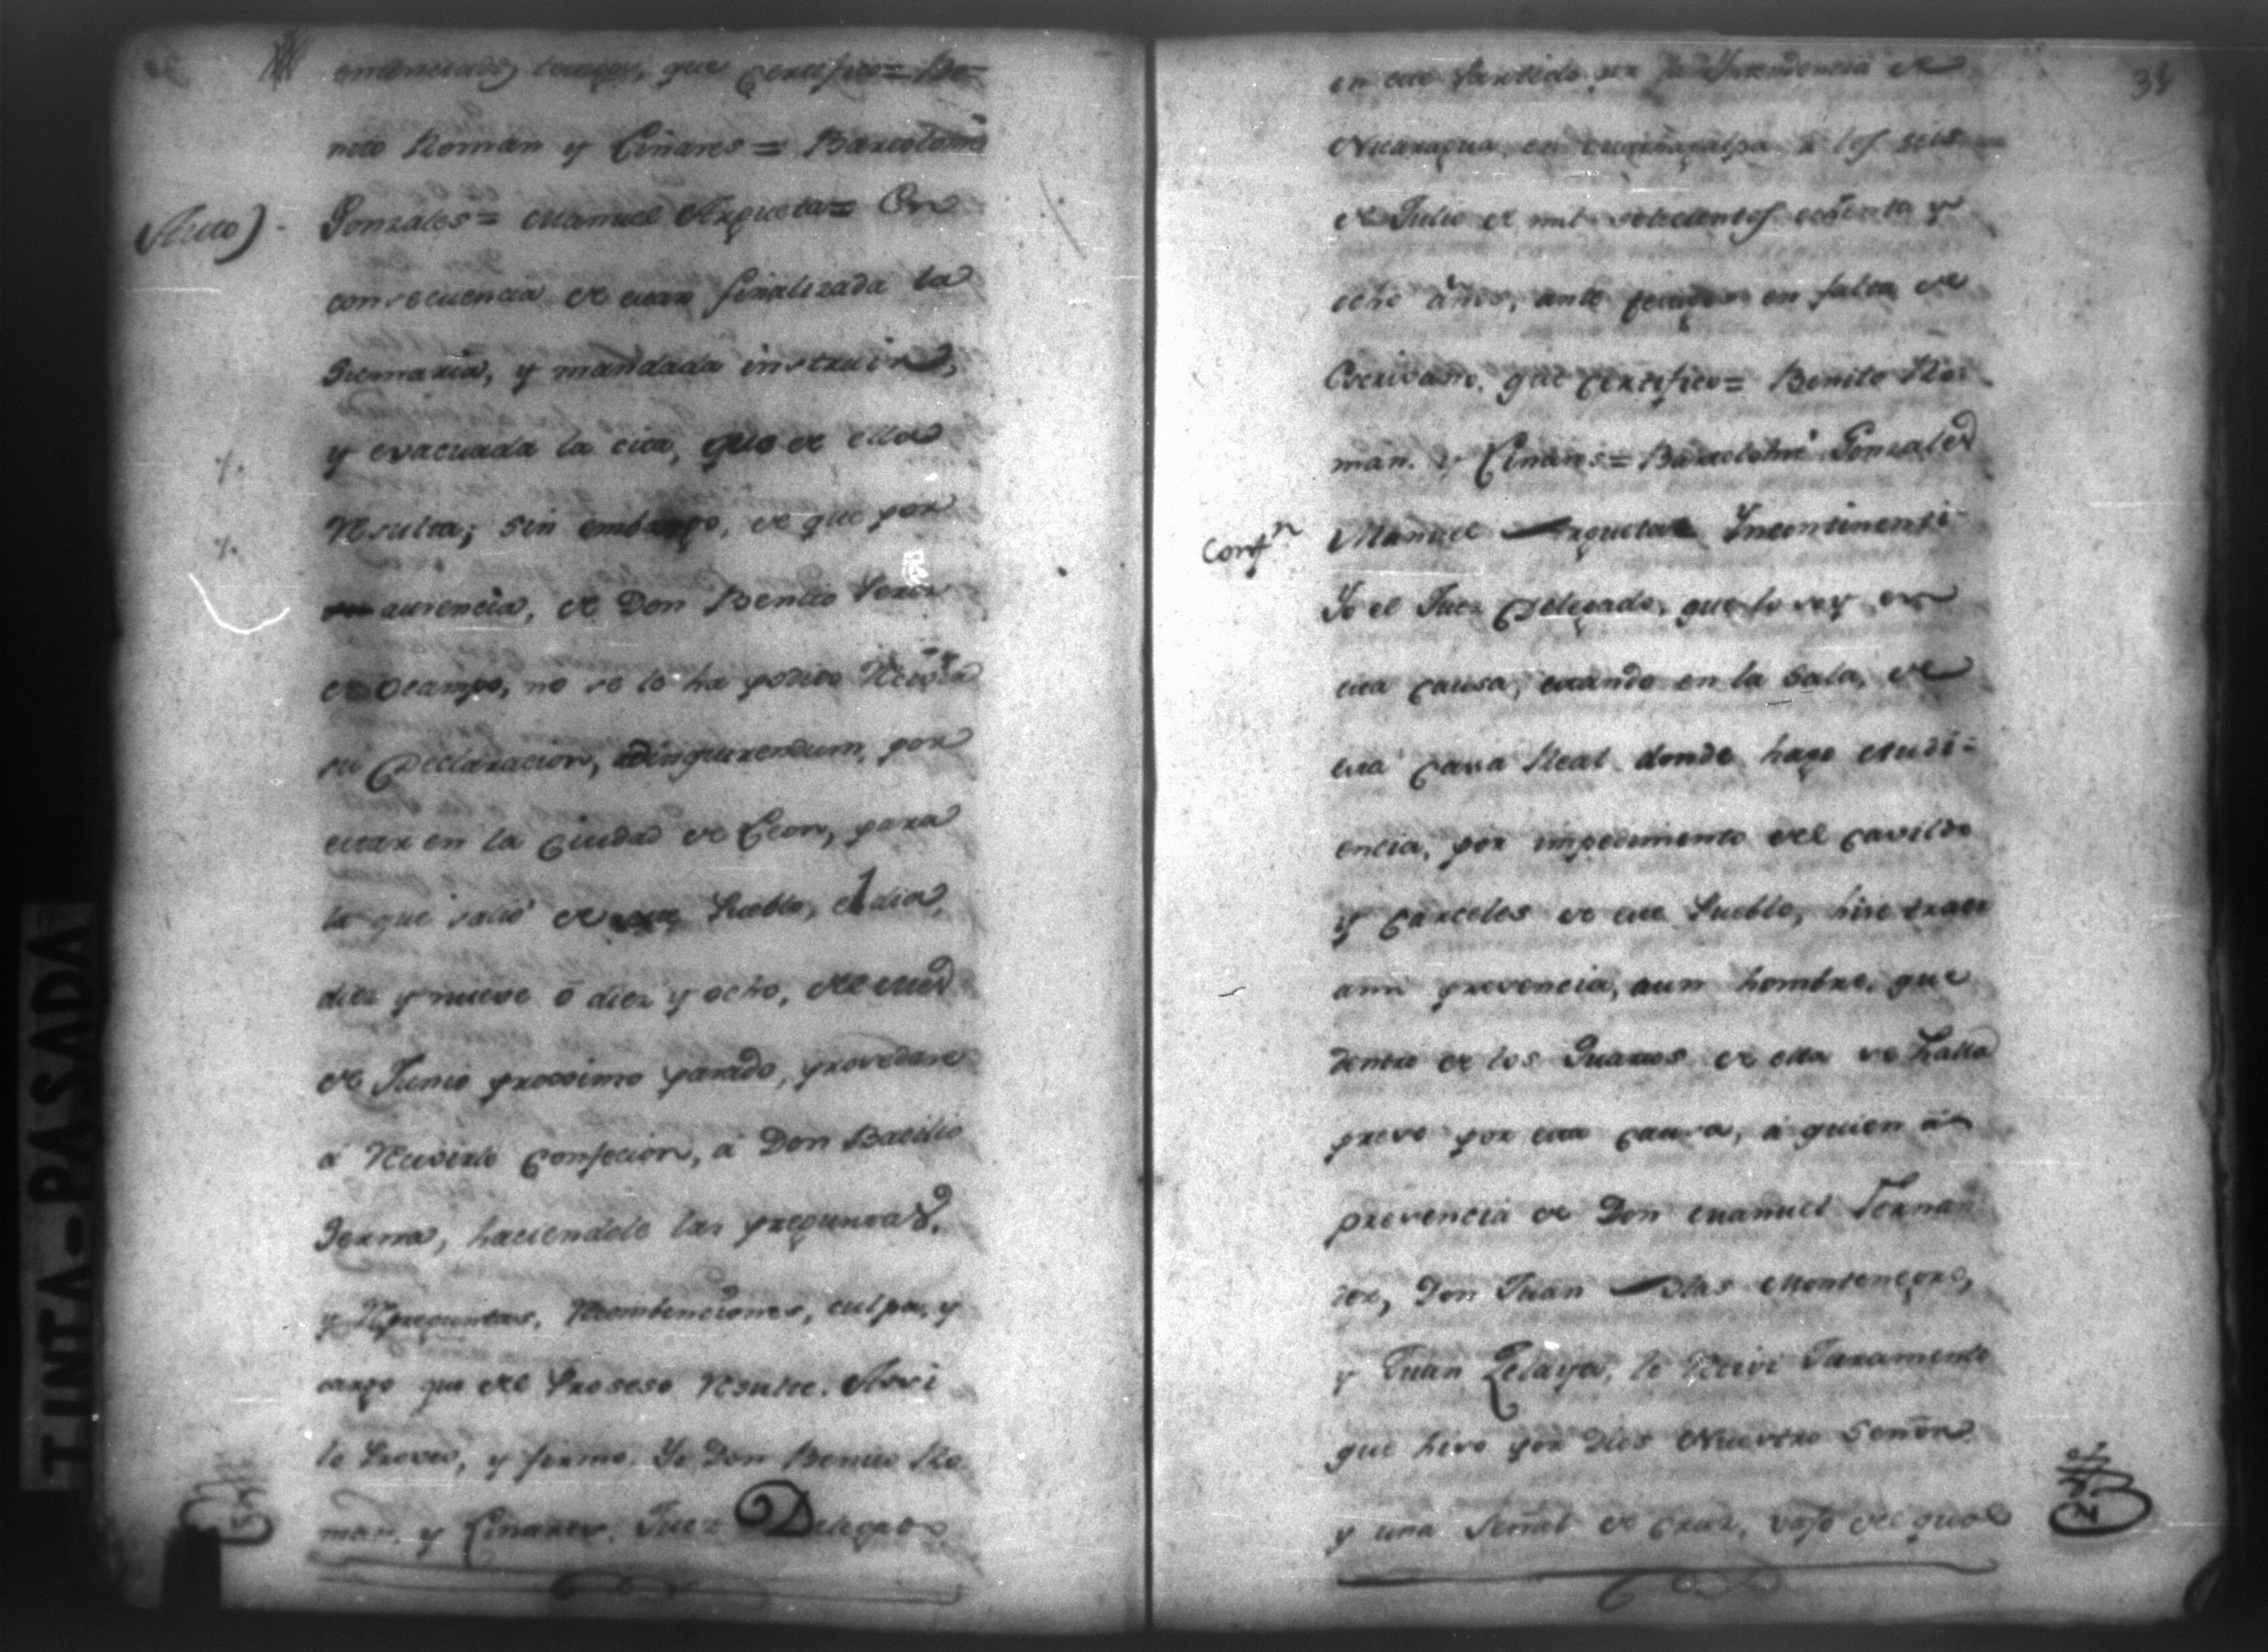 testigos, que certifico= Be=
nito Roman y Liñares= Bartolomé
Auto)
Gonzales= Manuel Argueta= En
consecuencia de estar finalizada la
Sumaria, y mandada instruir,
y evacuada la cita, que de ella
resulta; sin embargo, de que por
ausencia, de Don Benito Perez
de Ocampo, no se le ha podido recivir
su Declaracion, adinquirendum, por
estar en la Ciudad de Leon, para
la que salió de este Pueblo, el dia
diez y nueve ó diez y ocho, del mes
de Junio procsimo pasado, procedase
á recivirle Confecion, á Don Basilio
Serma, haciendole las preguntas,
y repreguntas, recombenciones, culpa, y
cargo que del Proseso resulte. Assi
lo Proveo, y firmo. Yo Don Benito Ro
man, y Liñares. Juez Delegado
38
en este Partido por la Yntendencia de
Nicaragua, en á los seis
de Julio de mil setecientos ochenta y
ocho años, ante testigos en falta de
Escrivano, que certifico= Benito Ro=
man, y Liñares= Bartolomé Gonzales
Manuel Argueta= Yncontinenti
Conf.n
Yo el Juez Delegado, que lo soy en
esta causa, estando en la Sala, de
esta Casa Real donde hago Audi=
encia, por impedimento del Cavildo
y Carceles de este Pueblo, hise traer
ami presencia, aun hombre, que
dentro de los Quartos de ella se halla
preso por esta causa, á quien á
presencia de Don Manuel Fernan
dez, Don Juan Blas Montenegro,
y Juan Zelaya, le recivi Juramento
que hizo por Dios Nuestro Señor
y una Señal de Cruz, vajo del qual
TINTA-PASADA